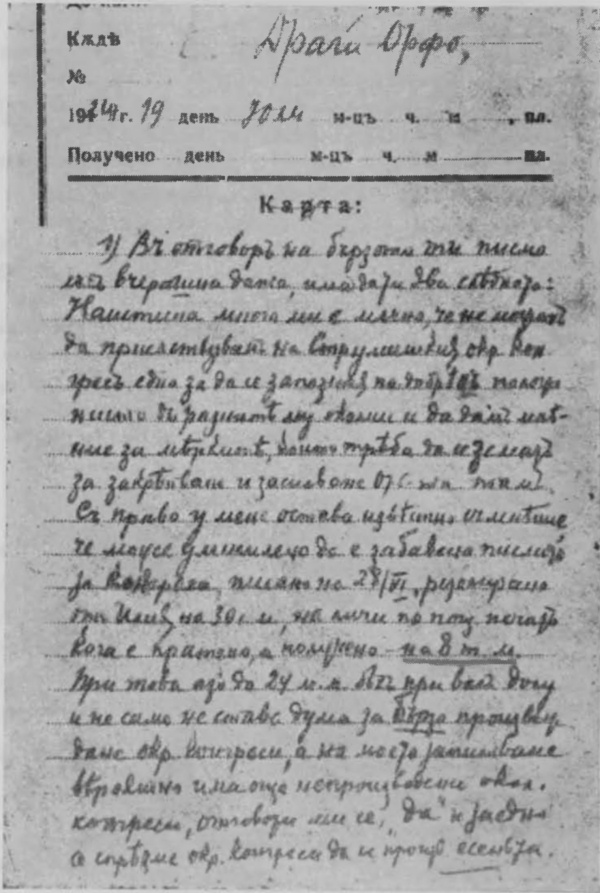 Кждѣ Драги Орфо,
№
1924 г. 19 день Юли м-цъ ч. м , пл.
Получено день м-цъ ч. м пл.
Карта:
1) Въ отговоръ на бързото ти писмо
отъ вчерашна дата, има да ти два следната:
Наистина много ми е мъчно, че не можахъ
да присъствувамъ на Струмишкия окр. кон
гресъ едно за да се запозная по добре съ положе
нието въ разните му околии и да дамъ мне-
ние за мѣркитѣ, които трѣба да се взематъ
за закрѣпване и засилване О/с-та тамъ.
Съ право у мене остава съмнение
че може умишлено да е забавено писмото
за Конгреса, писано на 28/VI, резолирано
отъ Илия на 30 с. м., не личи по печатъ
кога е пратено, а получено на 8 т. м.
При това азъ до 24 м. м. бѣхъ при васъ долу
и не само не става дума за бързо произвеж
дане окр. конгреси, а на моето запитване
вѣроятно има още непроизведени окол.
конгреси, отговори ми се, "да" и заедно
окр. конгреси да се есеньта.